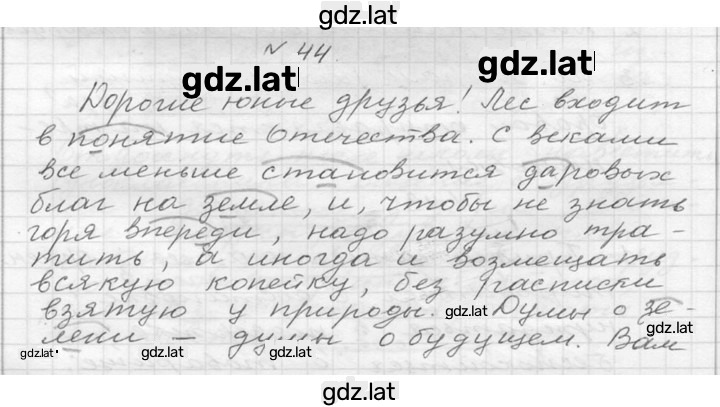 gdz.lat
№ 44
gdz.lat gdz.lat
Дорогие юные друзья! Лес входит
в понятие Отечества. С веками
все меньше становится даровых
благ на земле, и, чтобы не знать
горя впереди, надо разумно тра-
тить, а иногда и возмещать
всякую копейку, без расписки
взятую у природы. gdz.lat Думы о зе-
gdz.lat
лени – думы о будущем. Вам
gdz.lat gdz.lat gdz.lat
gdz.lat